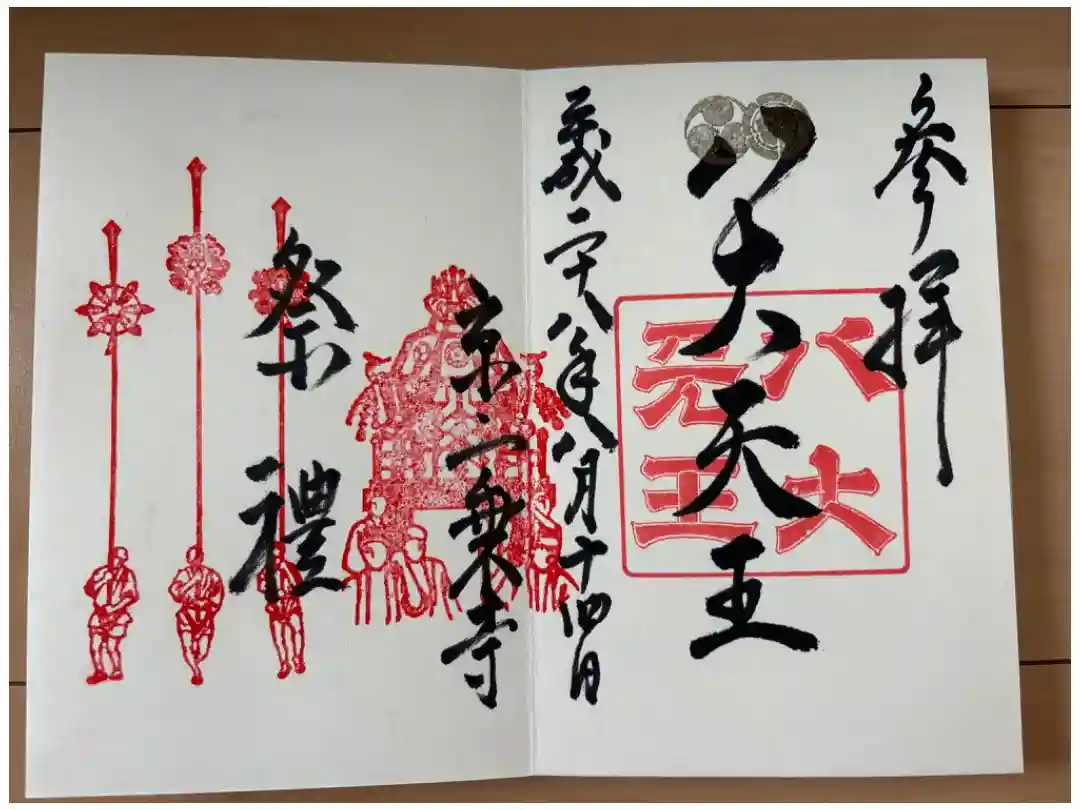 参拝
八大天王
八大
天王
平成二十八年八月十四日
京一乗寺
祭禮